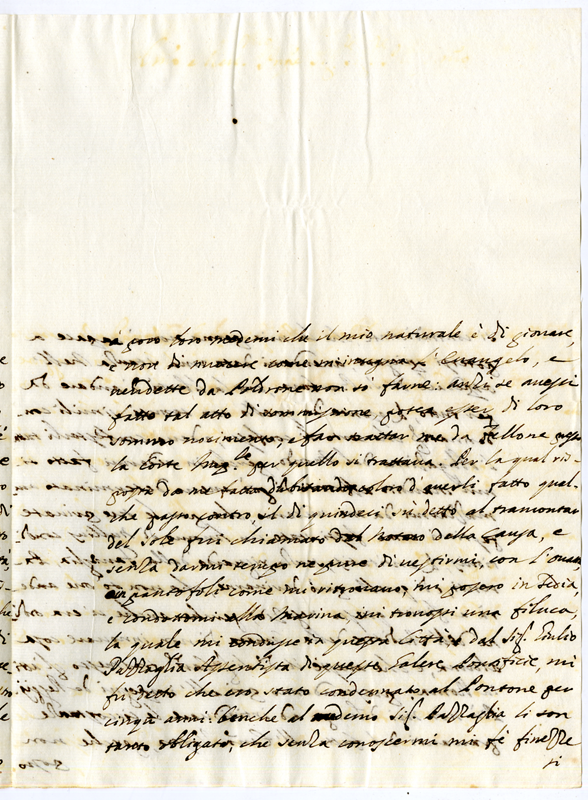 à loro medemi che il mio naturale è di giovare,
e non di nuocere come m'insegna l'Evangelo, e
vendette da Poltrone non si fanno: anzi se avessi
fatto tal atto di potea esser di loro
sommo nocimento, e far trattar me da Fellone
la Corte per quello si trattava. Per la qual ris-
posta da me fatta dubitando coloro d'averli fatto qual-
che passo contro, il dì quindeci sudetto al tramontar
del Sole fui chiamato dal Notaro della Causa, e
senza darmi tempo neppure di vestirmi, con
pantofoli come mi ritrovavo, mi posero in sedia,
e condottomi alla Marina, mi trovossi una filuca,
la quale mi condusse in questa Città, e dal Sig. Giulio
Pazzaglia Assentista di queste Galere Pontificie, mi
fu detto che ero stato condennato al Pontone per
cinque anni: benche al medemo Sig. Pazzaglia li son
tanto obligato, che senza conoscermi mi fè finezze
si